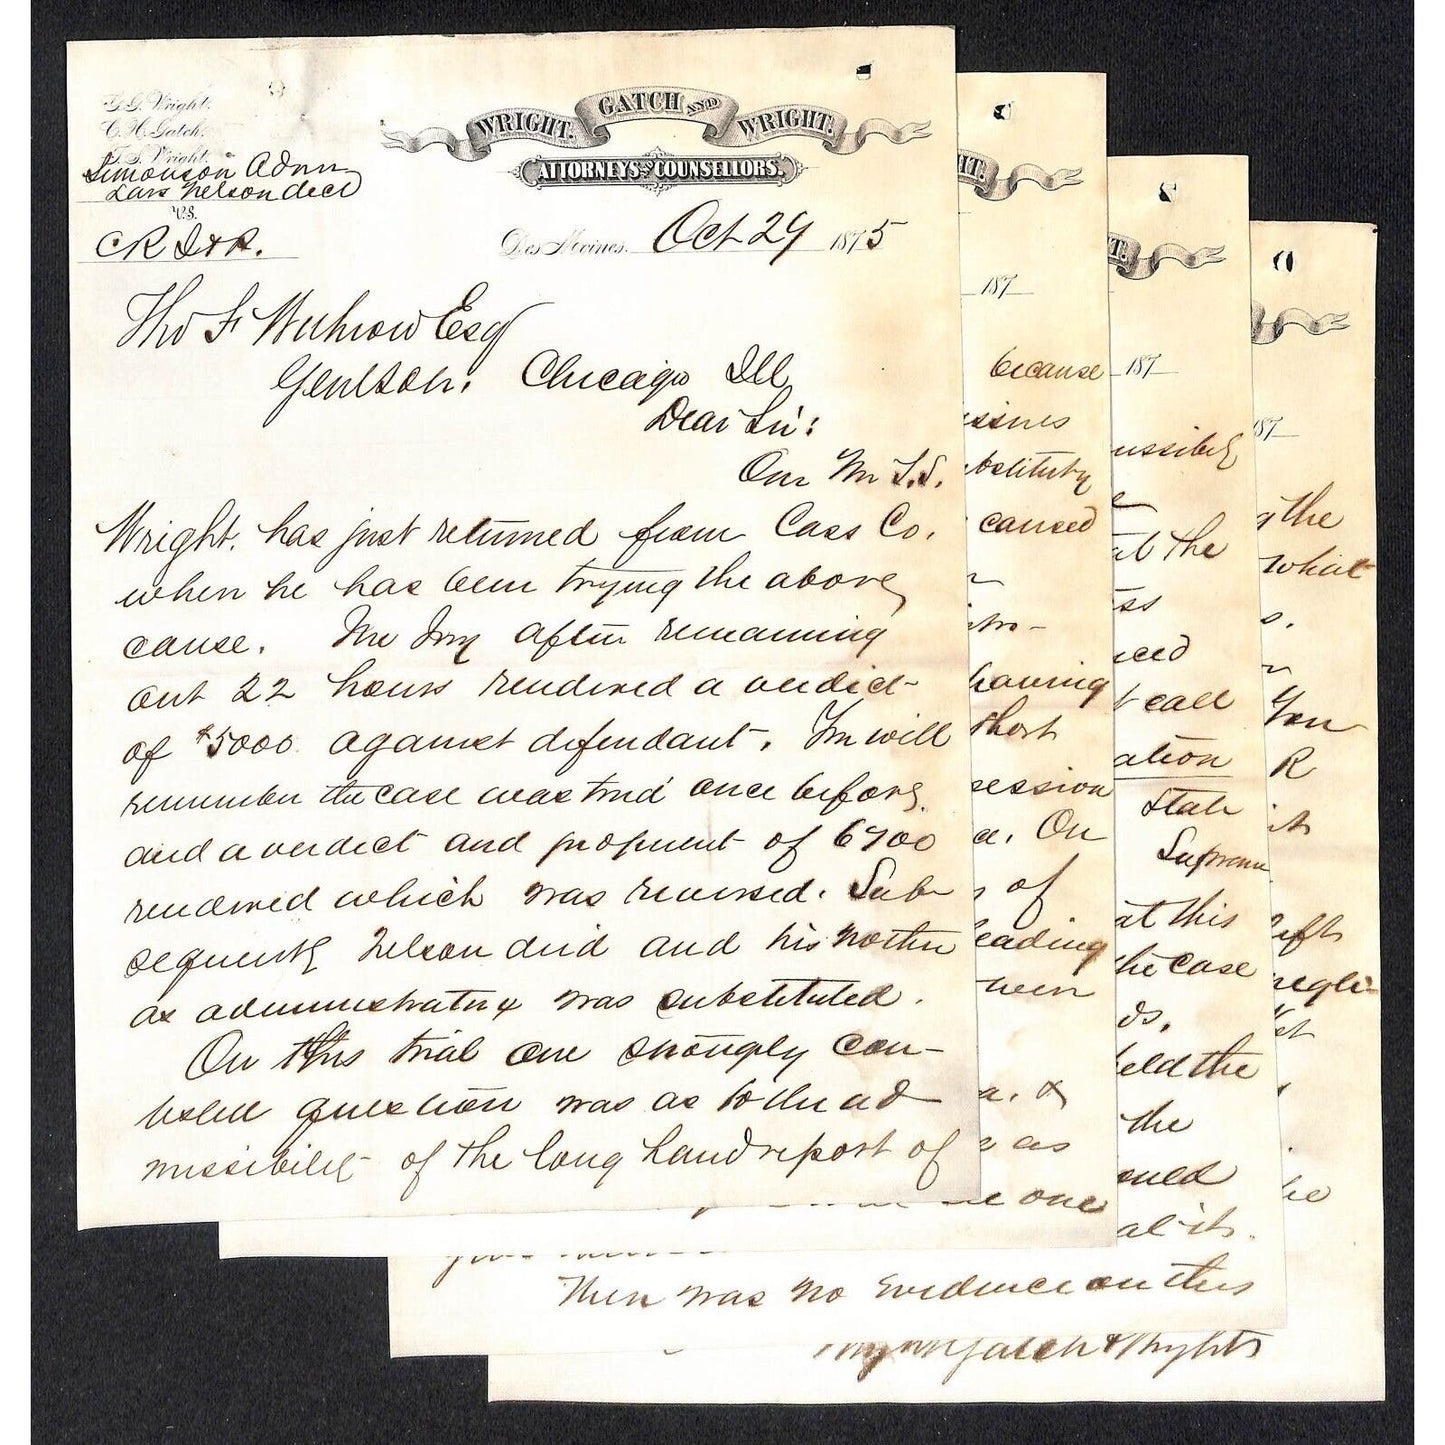 G. G. Wright.
C. H. Gatch.
T. S. Wright.
WRIGHT. GATCH AND WRIGHT.
ATTORNEYS AND COUNSELLORS.
Simonson Admx
Lars Nelson decd
vs.
C R I & P.
Des Moines. Oct 29 1875
Tho F Withrow Esq
Gen'l Sol. Chicago Ill
Dear Sir:
Our Mr T.S.
Wright. has just returned from Cass Co.
when he has been trying the above
cause. The Jury after remaining
out 22 hours rendered a verdict
of $5000 against defendant. You will
remember the case was tried once before
and a verdict and judgment of 6700
rendered which was reversed. Sub-
sequently Nelson died and his mother
as administratrix was substituted.
On this trial one strongly con-
tested question was as to the ad
missibility of the long hand report of
187
because
ssines
bstitute
caused
tro-
having
short
session
a. On
of
eading
been
a. &
as
one
187
ussibly
at the
ss
ced
call
ation
State
Supreme
at this
the case
ds.
held the
the
oned
al-its.
Then was no Evidence on this
187
g the
what
s.
You
R
its
left
negli-
he
Gatch & Wright